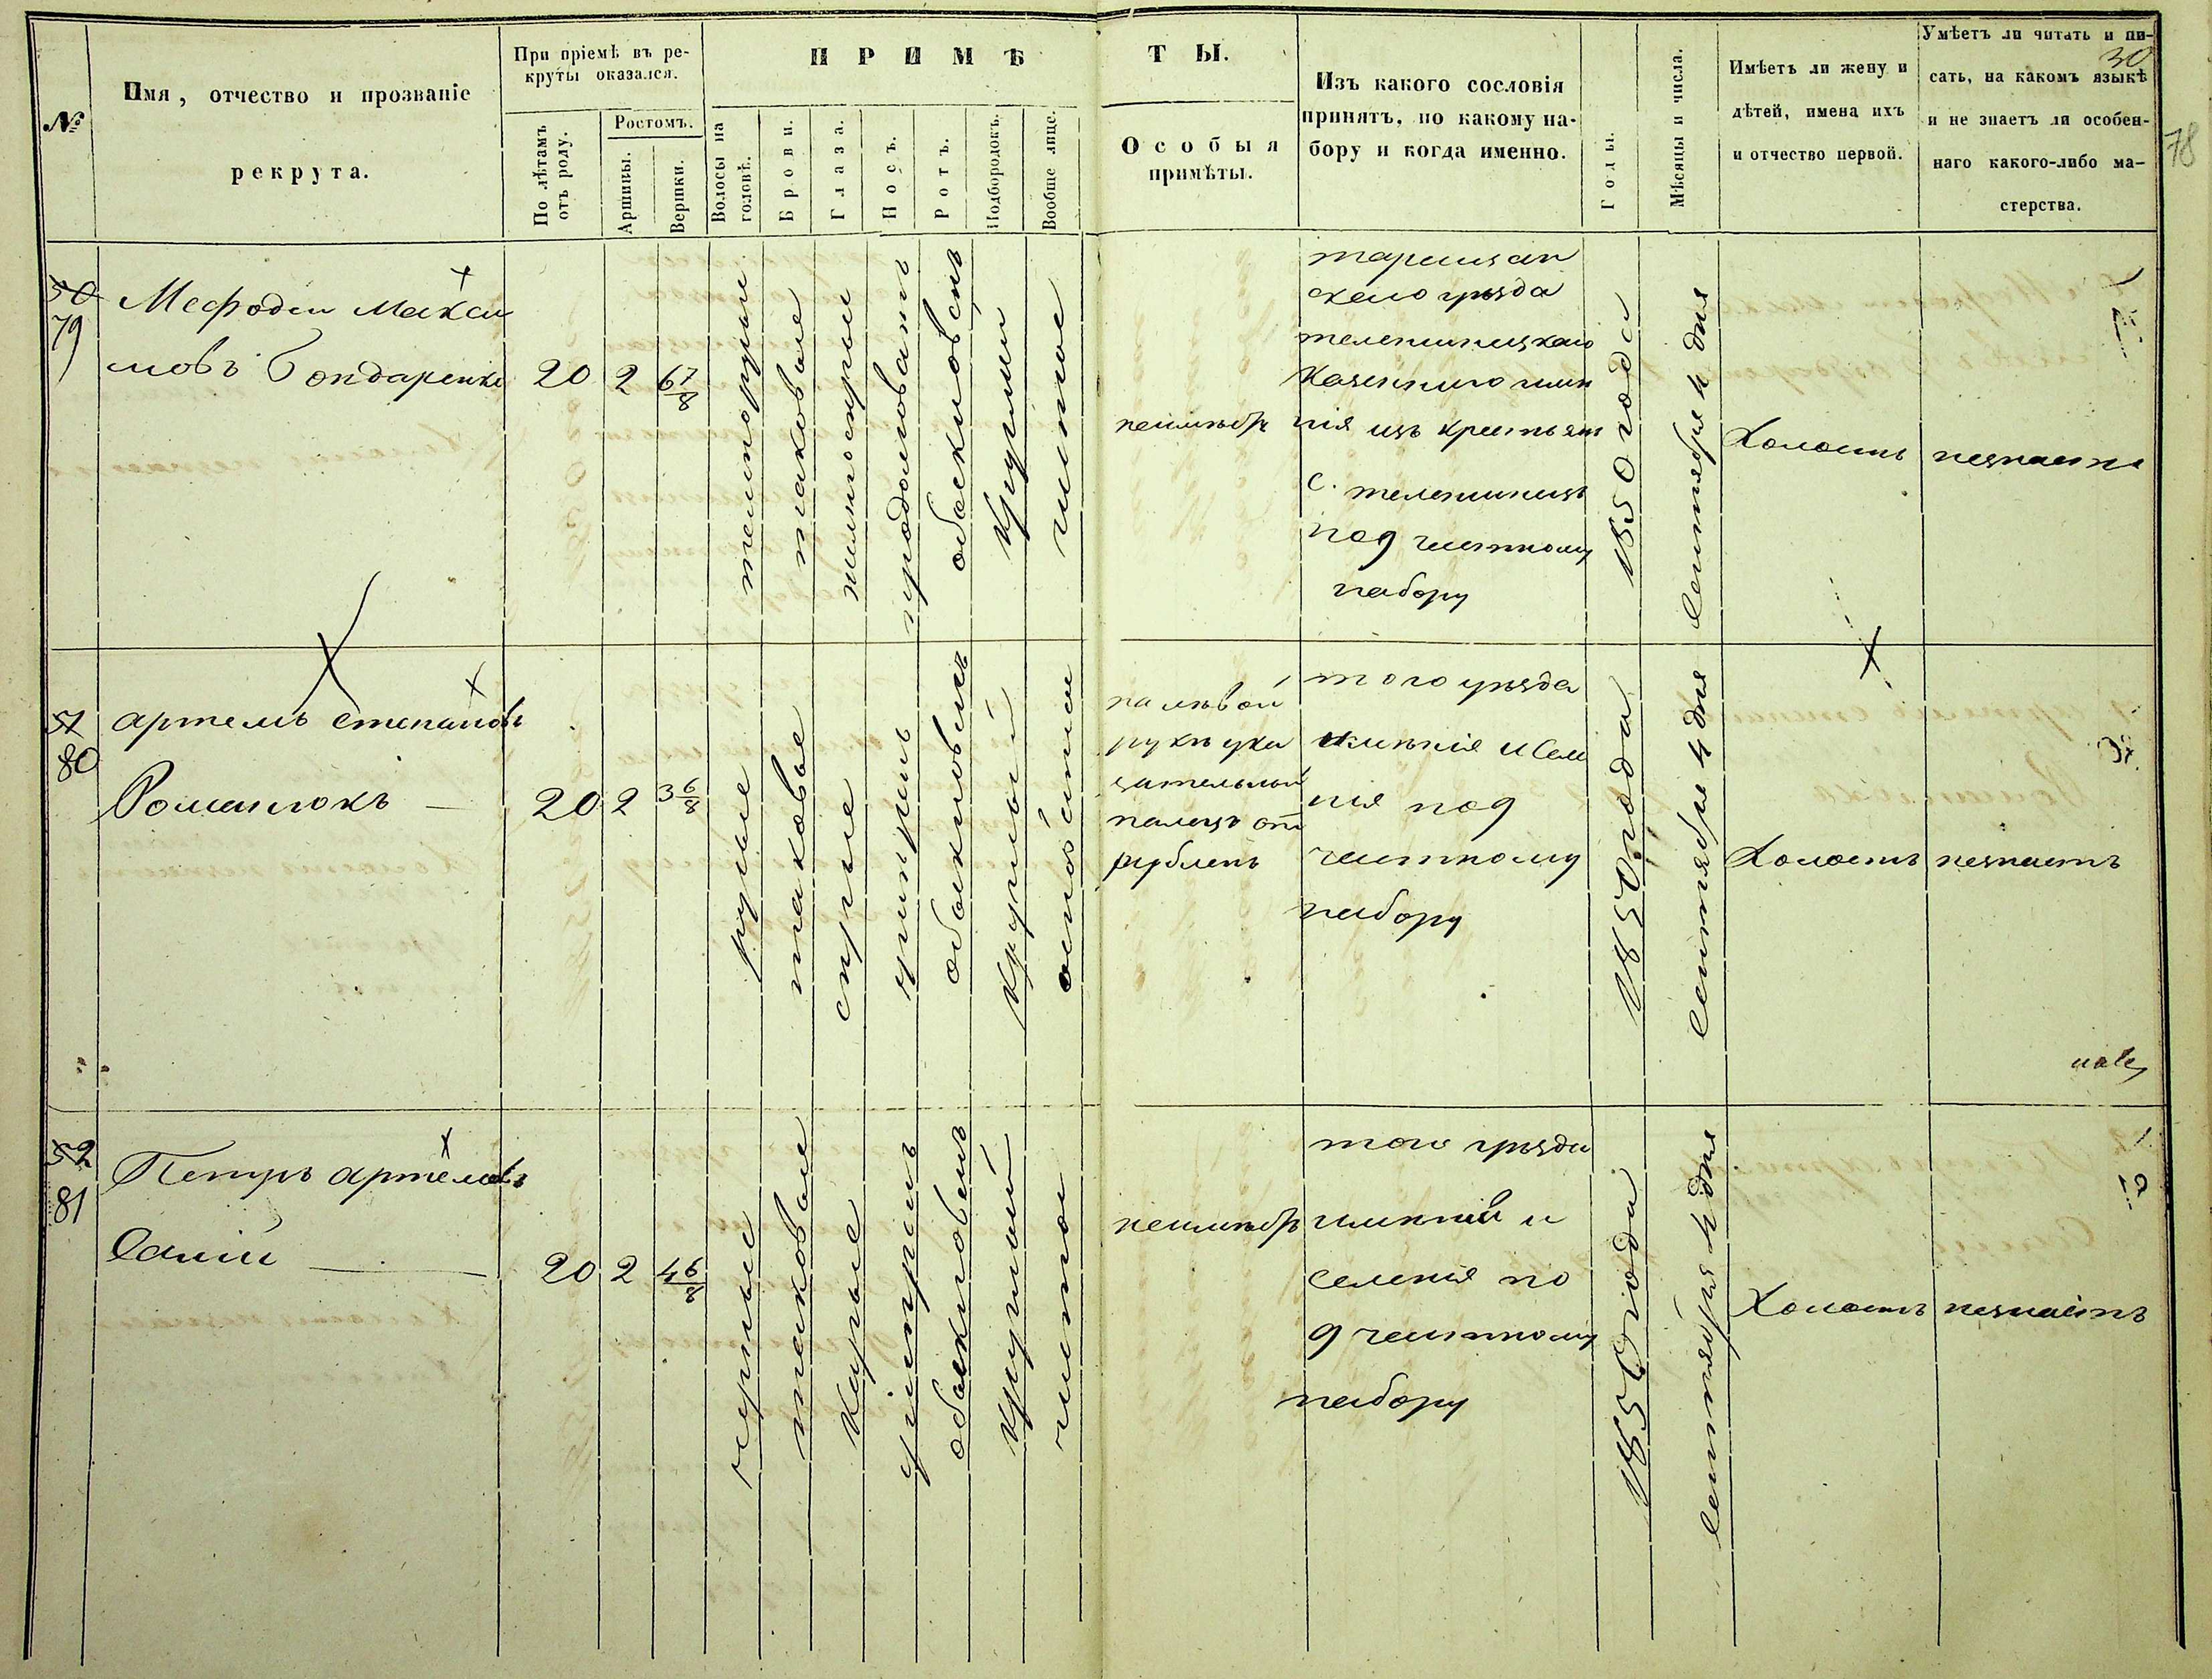 30
78
№
Имя, отчество и прозваніе
рекрута.
При пріемѣ въ ре-
круты оказался.
По лѣтамъ
отъ роду.
Ростомъ.
Аршины.
Вершки.
ПРИМѢ
ТЫ.
Волосы на
головѣ.
Брови.
Глаза.
Носъ.
Ротъ.
Подбородокъ.
Вообще лице.
Особыя
примѣты.
Изъ какого сословія
принятъ, по какому на-
бору и когда именно.
Годы.
Мѣсяцы и числа.
Имѣетъ ли жену и
дѣтей, имена ихъ
и отчество первой.
Умѣетъ ли читать и пи-
сать, на какомъ языкѣ
и не знаетъ ли особен-
наго какого-либо ма-
стерства.
50
79
Мефодей Макси
мовъ Бондаренко
20
2
6 7/8
темнорусые
таковые
продолговатъ
обыкновенъ
чистое
неимѣетъ
скаго уѣзда
нія изъ крестьян
с.
под частному
набору
1850 года
Сентября 4 дня
Холостъ
незнаетъ
51
80
Артемъ Степановъ
Романюкъ
20
2
3 6/8
русые
таковые
серые
обыкновенъ
круглый
на лѣвой
руке ука
зательный
палецъ от
рубленъ
того уѣзда
имѣнія и Селе
нія под
частному
набору
1850 года
Сентября 4 дня
Холостъ
незнаетъ
52
81
Петръ Артемовъ
20
2
4 6/8
черные
таковые
карые
обыкновенъ
круглый
чистое
неимѣетъ
того уѣзда
имѣнія и
селенія по
д частному
набору
1850 года
Сентября 4 дня
Холостъ
незнаетъ